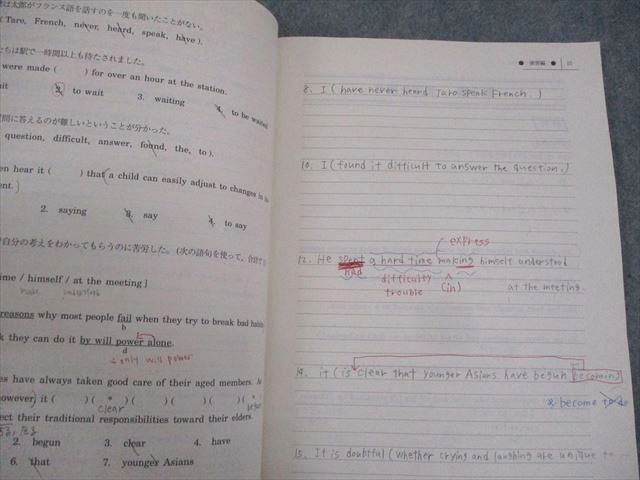 は太郎がフランス語を話すのを一度も聞いたことがない。
(Taro, French, never, heard, speak, have).
たちは駅で一時間以上も待たされました。
were made ( ) for over an hour at the station.
2. to wait 3. waiting 4. to be waited
問に答えるのが難しいということが分かった。
question, difficult, answer, found, the, to).
en hear it ( ) that a child can easily adjust to changes in
2. saying 3. say 4. to say
自分の考えをわかってもらうのに苦労した。(次の語句を使って,
ime / himself / at the meeting]
make understand
reasons why most people fail when they try to break bad habits
b
k they can do it by will power alone.
d
= only will power
es have always taken good care of their aged members. As
however, it ( ) ( * ) ( ) ( ) ( ) ( * )
clear
ect their traditional responsibilities toward their elders.
2. begun 3. clear 4. have
6. that 7. younger Asians
● 演習編 ●
8. I (have never heard Taro speak French.)
10. I (found it difficult to answer the question.)
express
12. He spent a hard time making himself understood
had difficulty (in) at the meeting.
trouble
14. it (is clear that younger Asians have begun becoming
8. become to do
15. It is doubtful (whether crying and laughing are unique to